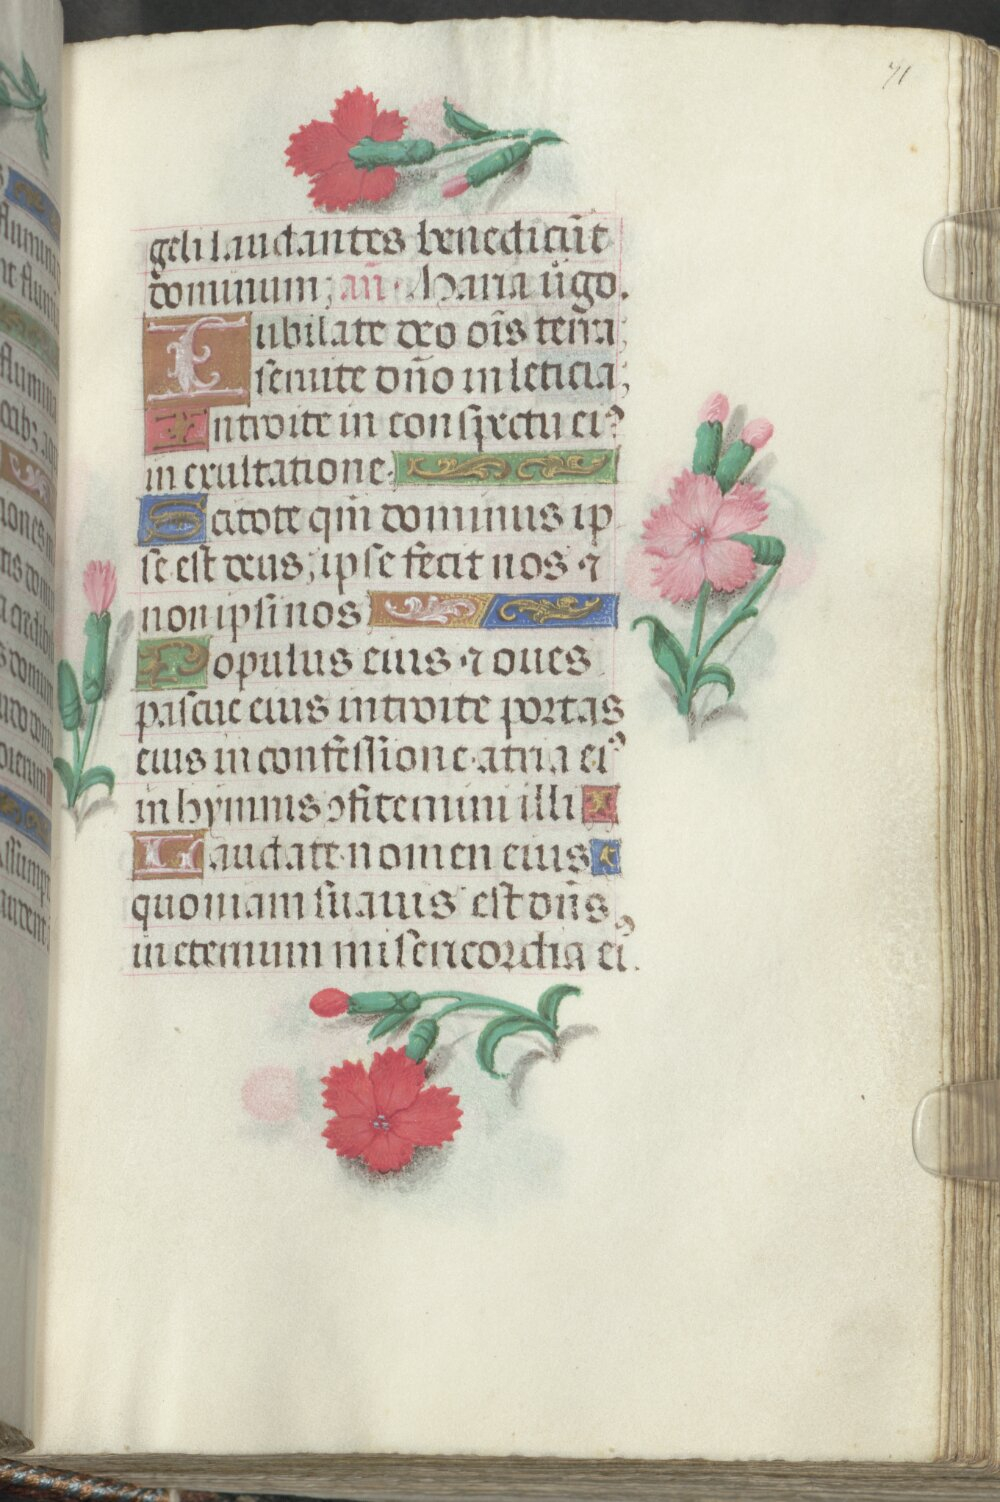 71
geli laudantes benedicūt
dominum; añ. Maria ṽgo.
Iubilate deo oīs terra;
seruite dño in leticia;
Introite in conspectu ei⁹
in exultatione.
Scitote qm̄ dominus ip
se est deus; ipse fecit nos ⁊
non ipsi nos
Populus eius ⁊ oues
pascue eius introite portas
eius in confessione atria ei⁹
in hymnis ↄfitemini illi
Laudate nomen eius
quoniam suauis est dñs
in eternum misericordia ei⁹.